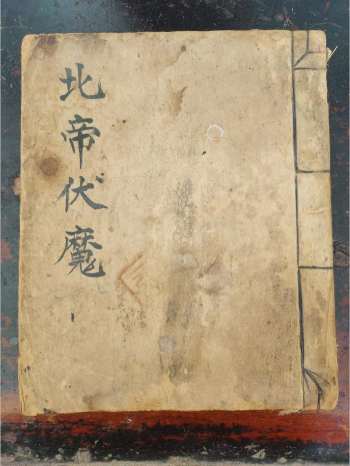 北帝伏魔